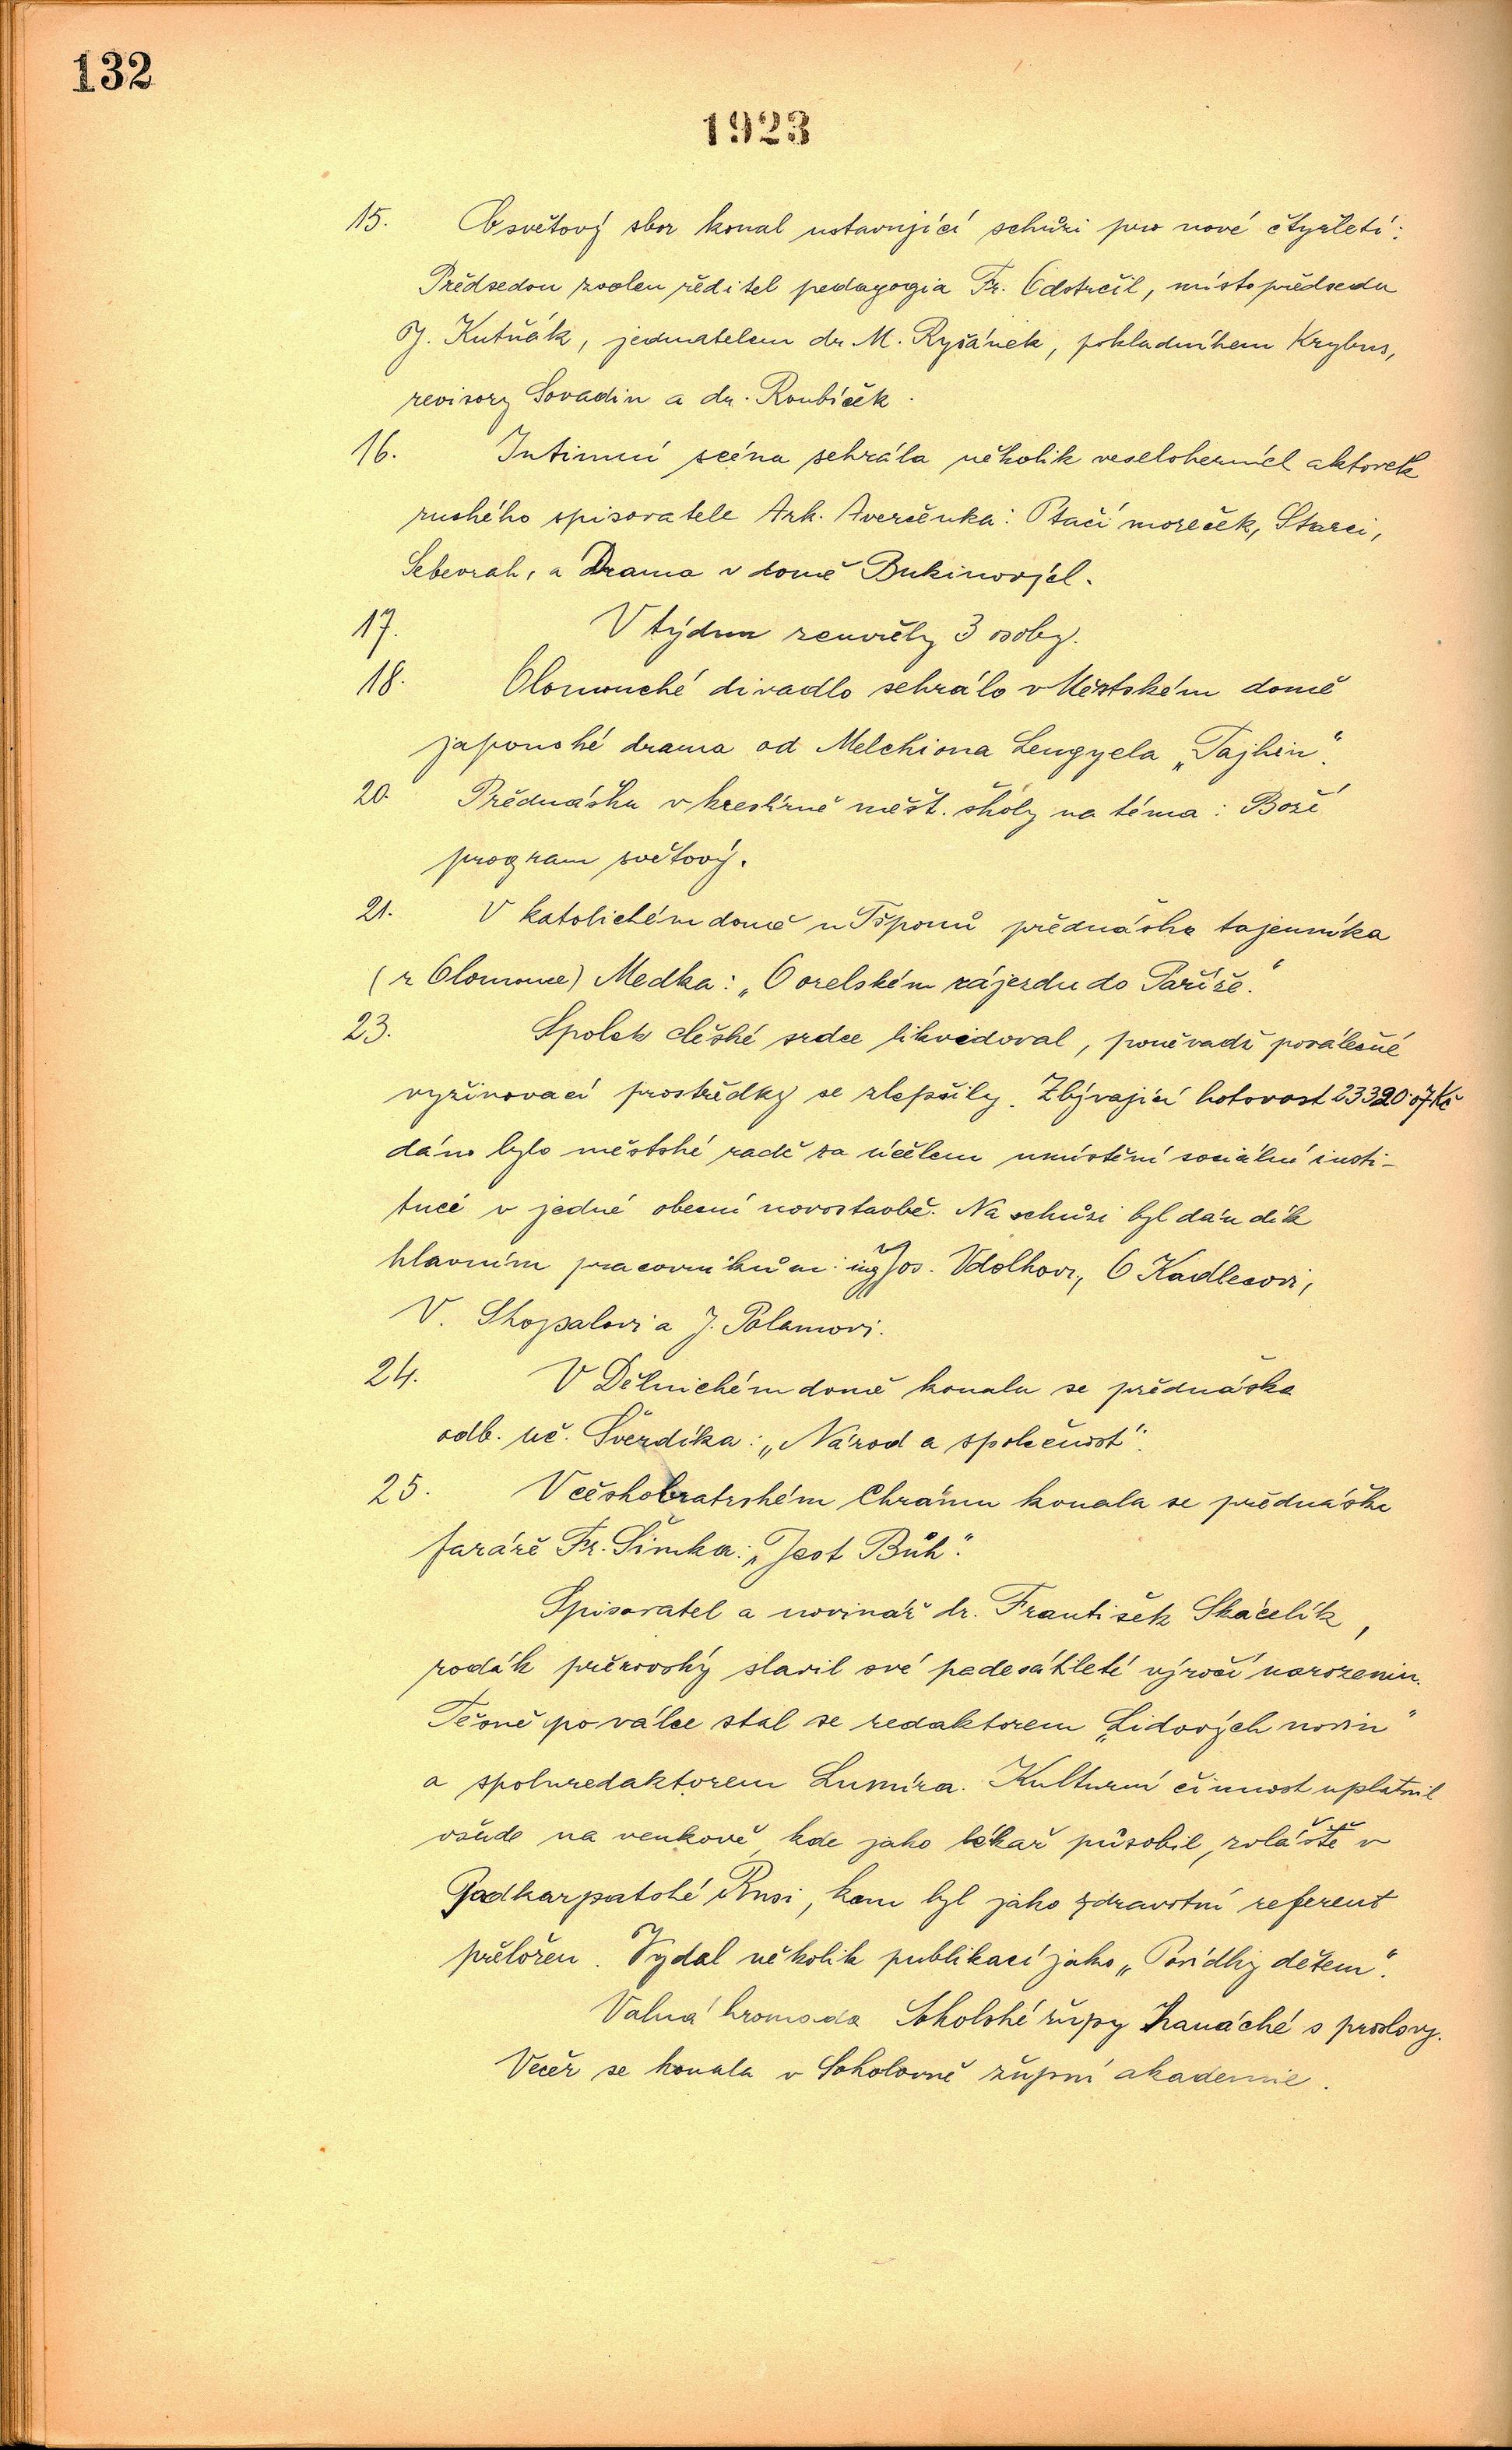 132
1923
15. Osvětový sbor konal ustavující schůzi pro nové čtyřletí:
Předsedou zvolen ředitel pedagogia Fr. Odstrčil, místopředsedu
J. Kutňák, jednatelem dr M. Ryšánek, pokladníkem Krybus,
revisory Sovadin a dr. Roubíček.
16. Intimní scéna sehrála několik veseloherních aktovek
ruského spisovatele Ark. Averčenka: Ptačí mozeček, Starci,
Sebevrah, a Drama v domě Bukinových.
17. V týdnu zemřely 3 osoby.
18. Olomoucké divadlo sehrálo v Městském domě
japonské drama od Melchiora Lengyela „Tajfun".
20. Přednáška v kreslírně měšt. školy na téma: Boží
program světový.
21. V katolickém domě u Tšponů přednáška tajemníka
(z Olomouce) Medka: „O orelském zájezdu do Paříže."
23. Spolek České srdce likvidoval, poněvadž poválečné
vyživovací prostředky se zlepšily. Zbývající hotovost 23320.07 Kč
dáno bylo městské radě za účelem umístění sociální insti-
tucí v jedné obecní novostavbě. Na schůzi byl dán dík
hlavním pracovníkům: ing Jos. Vdolkovi, O Kadlecovi,
V. Skopalovi a J. Polamovi.
24. V Dělnickém domě konala se přednáška
odb. uč. Šverdíka: „Národ a společnost".
25. V českobratrském Chrámu konala se přednáška
faráře Fr. Šimka: „Jest Bůh".
Spisovatel a novinář dr. František Skácelík,
rodák přerovský slavil své padesátileté výročí narozenin.
Těsně po válce stal se redaktorem „Lidových novin"
a spoluredaktorem Lumíra. Kulturní činnost uplatnil
všude na venkově, kde jako lékař působil, zvláště v
Podkarpatské Rusi, kam byl jako zdravotní referent
přeložen. Vydal několik publikací jako „Povídky dětem".
Valná hromada Sokolské župy Hanácké s proslovy.
Večer se konala v Sokolovně župní akademie.